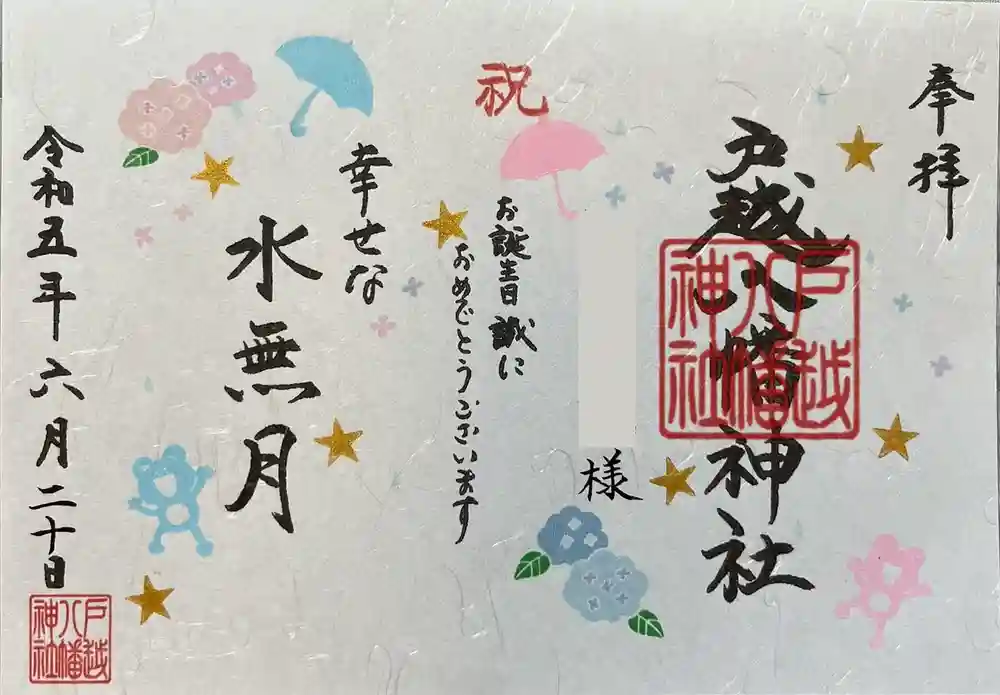 奉拝
戸越八幡神社
戸越
八幡
神社
様
祝
お誕生日誠に
おめでとうございます
幸せな
水無月
令和五年六月二十日
戸越
八幡
神社